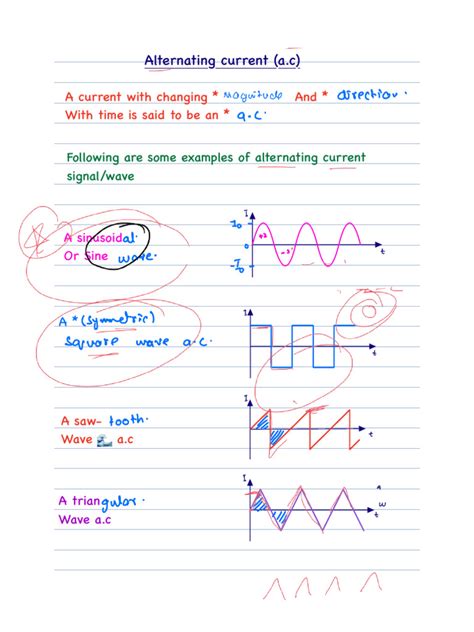 Alternating current (a.c)
A current with changing * magnitude And * direction.
With time is said to be an * a.c.
Following are some examples of alternating current
signal/wave
A sinusoidal.
Or Sine wave.
I
I₀
0
-I₀
+2
-2
t
A * (symmetric)
Square wave a.c.
I
t
A saw- tooth.
Wave 🌊 a.c
I
t
A triangular.
Wave a.c
I
t